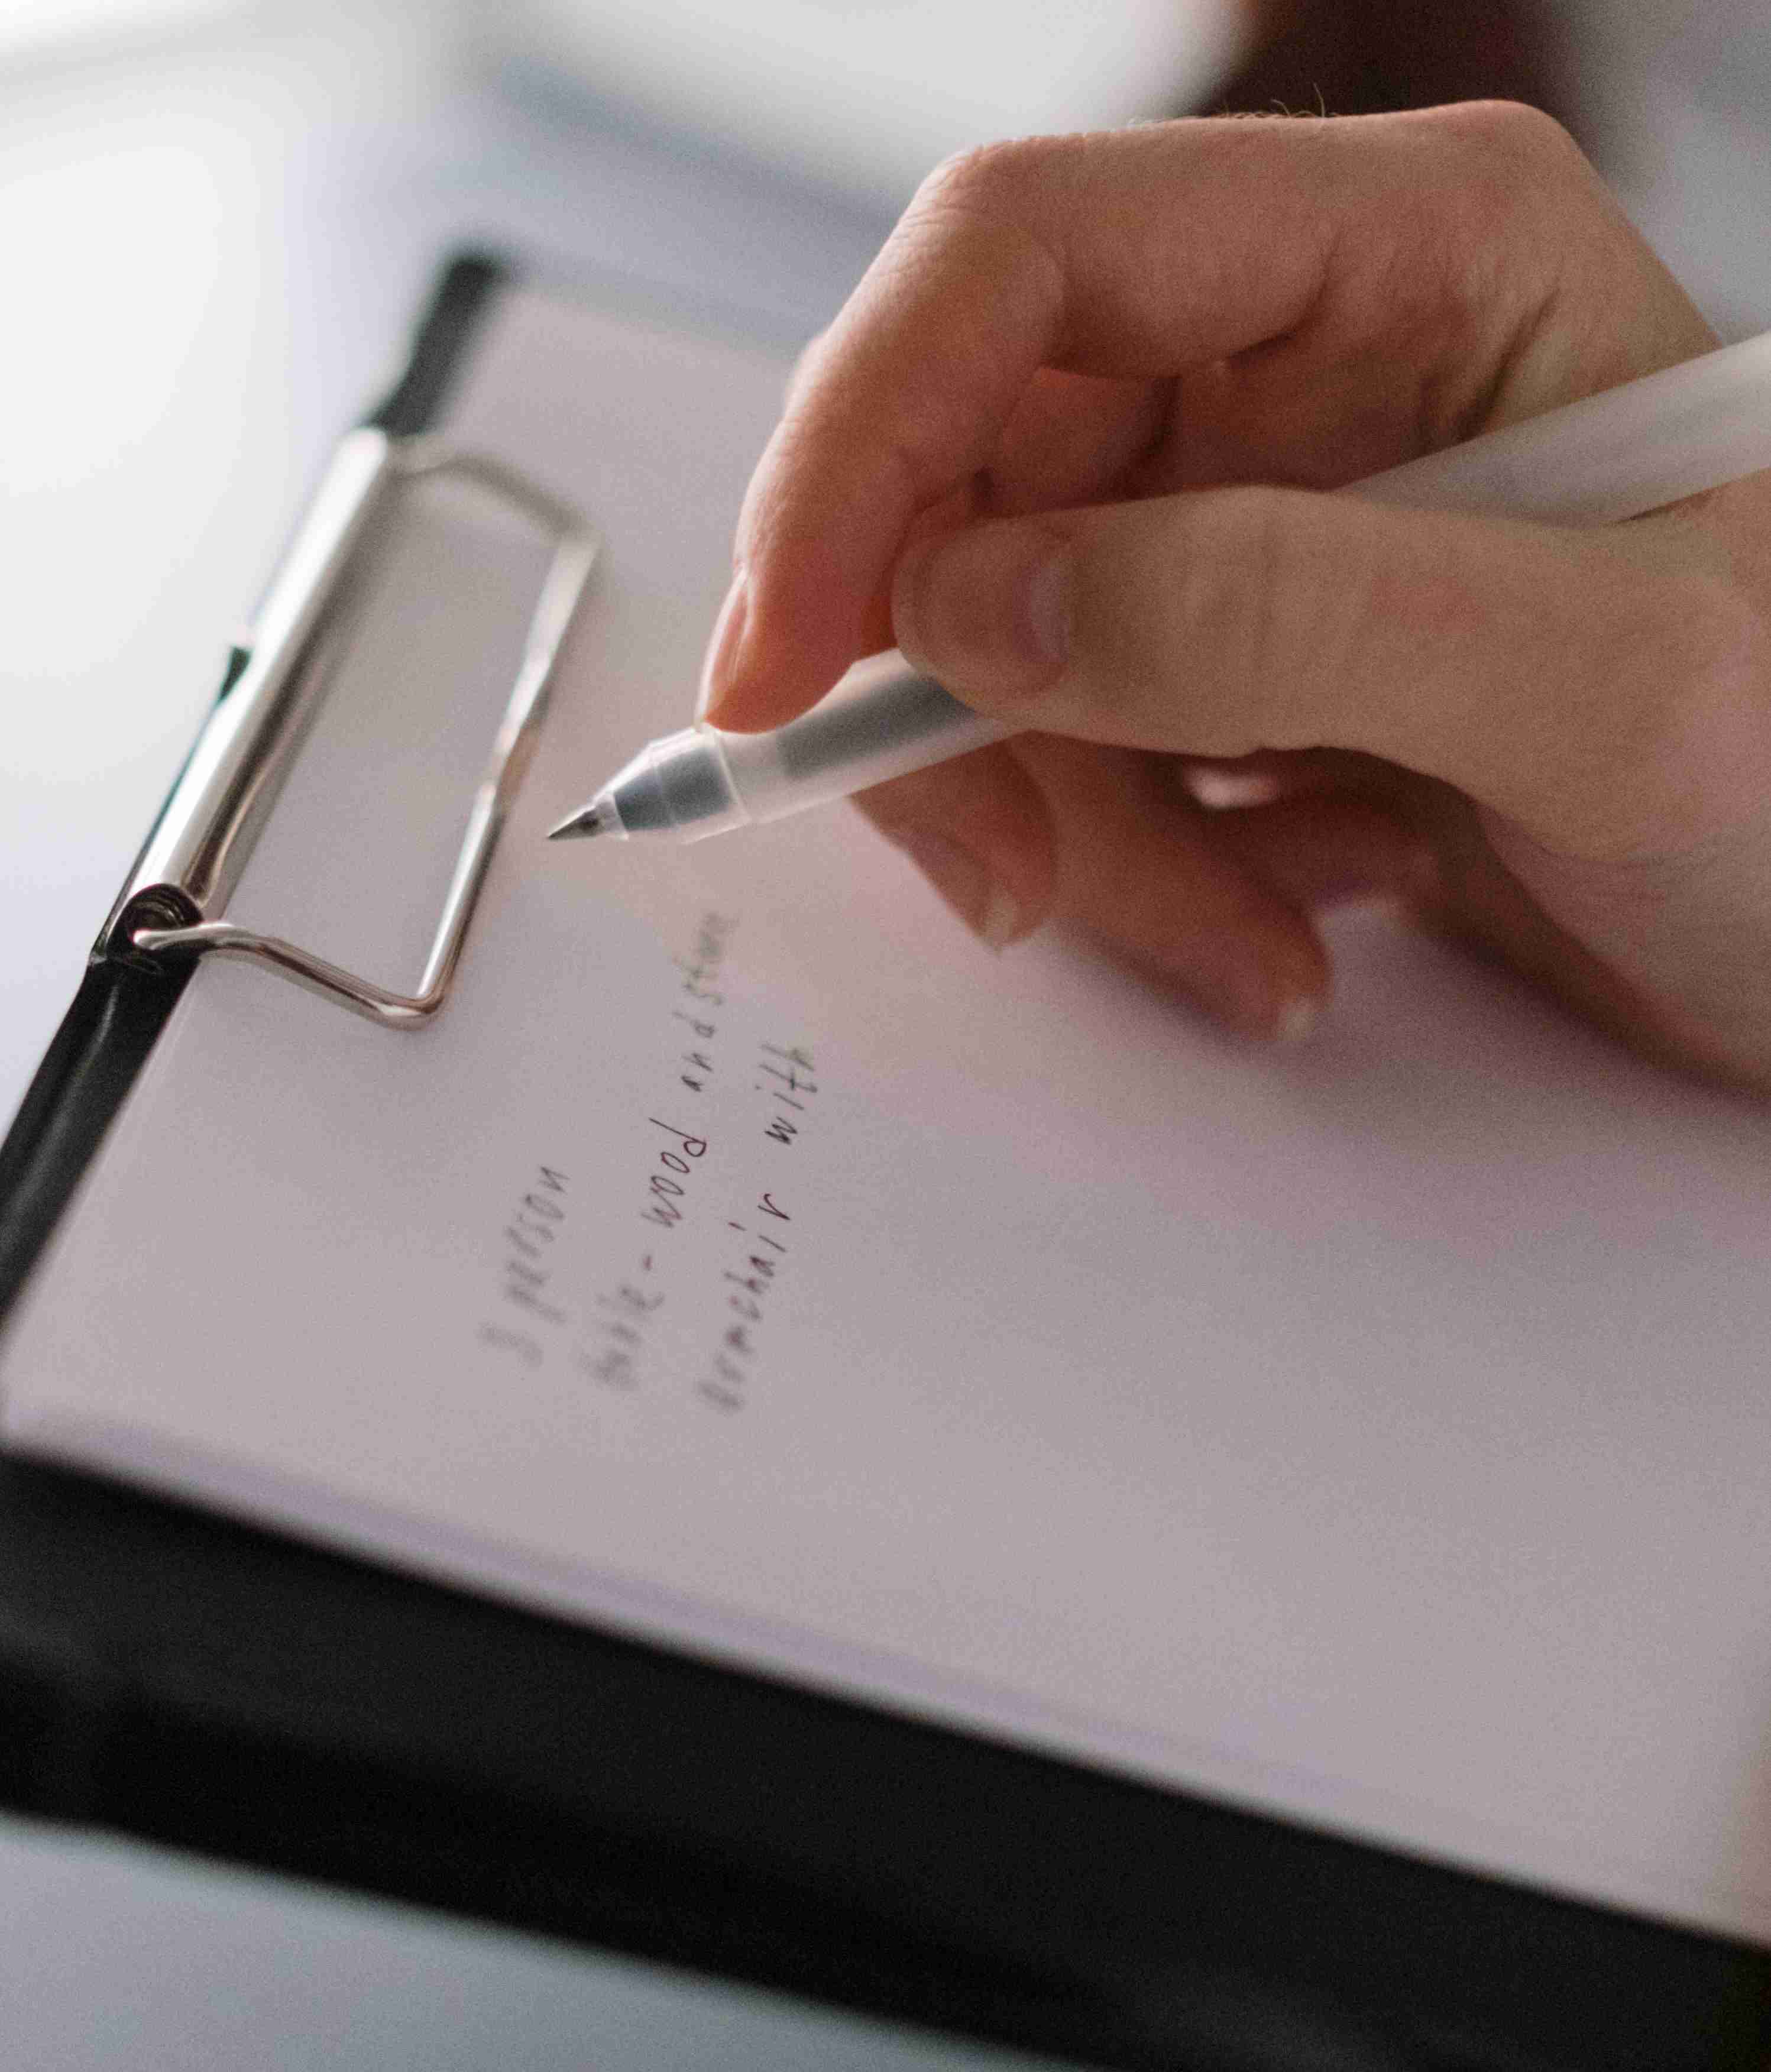 3 person
table - wood and stone
armchair with